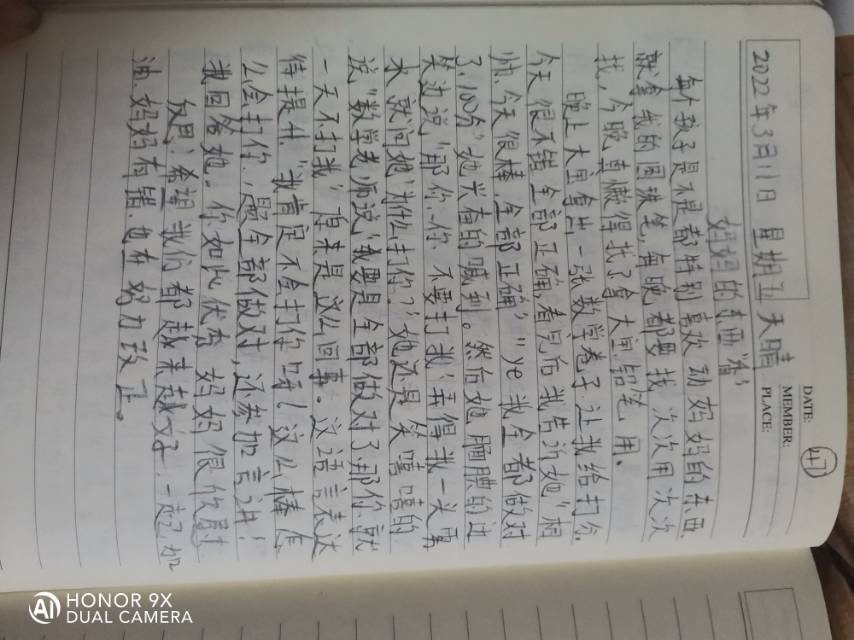 DATE:
MEMBER:
PLACE:
47
2022年3月11日 星期五 天晴
妈妈的东西"香"
每个孩子是不是都特别喜欢动妈妈的东西,
就拿我的圆珠笔,每晚都要找,次次用次次
找,今晚真懒得找了拿大宝铅笔用。
晚上大里拿出一张数学卷子让我给打分。
今天很不错全部正确,看完后我告诉她"相
帅,今天很棒全部正确""ye我全都做对
了,10分"她兴奋的喊到。然后她腼腆的边
笑边说"那你~你不要打我"弄得我一头雾
水就问她"为什么打你?"她还是笑嘻嘻的
说"数学老师说'我要是全部做对了那你就
一天不打我'"原来是这么回事。这语言表达
待提升"我肯定不会打你呀!这么棒怎
么会打你,是全部做对,还参加言讲!"
我回答她。你如此优秀妈妈很佩服
反思:希望我们都越来越好,一起加
油.妈妈有错.也在努力改正。
HONOR 9X
DUAL CAMERA